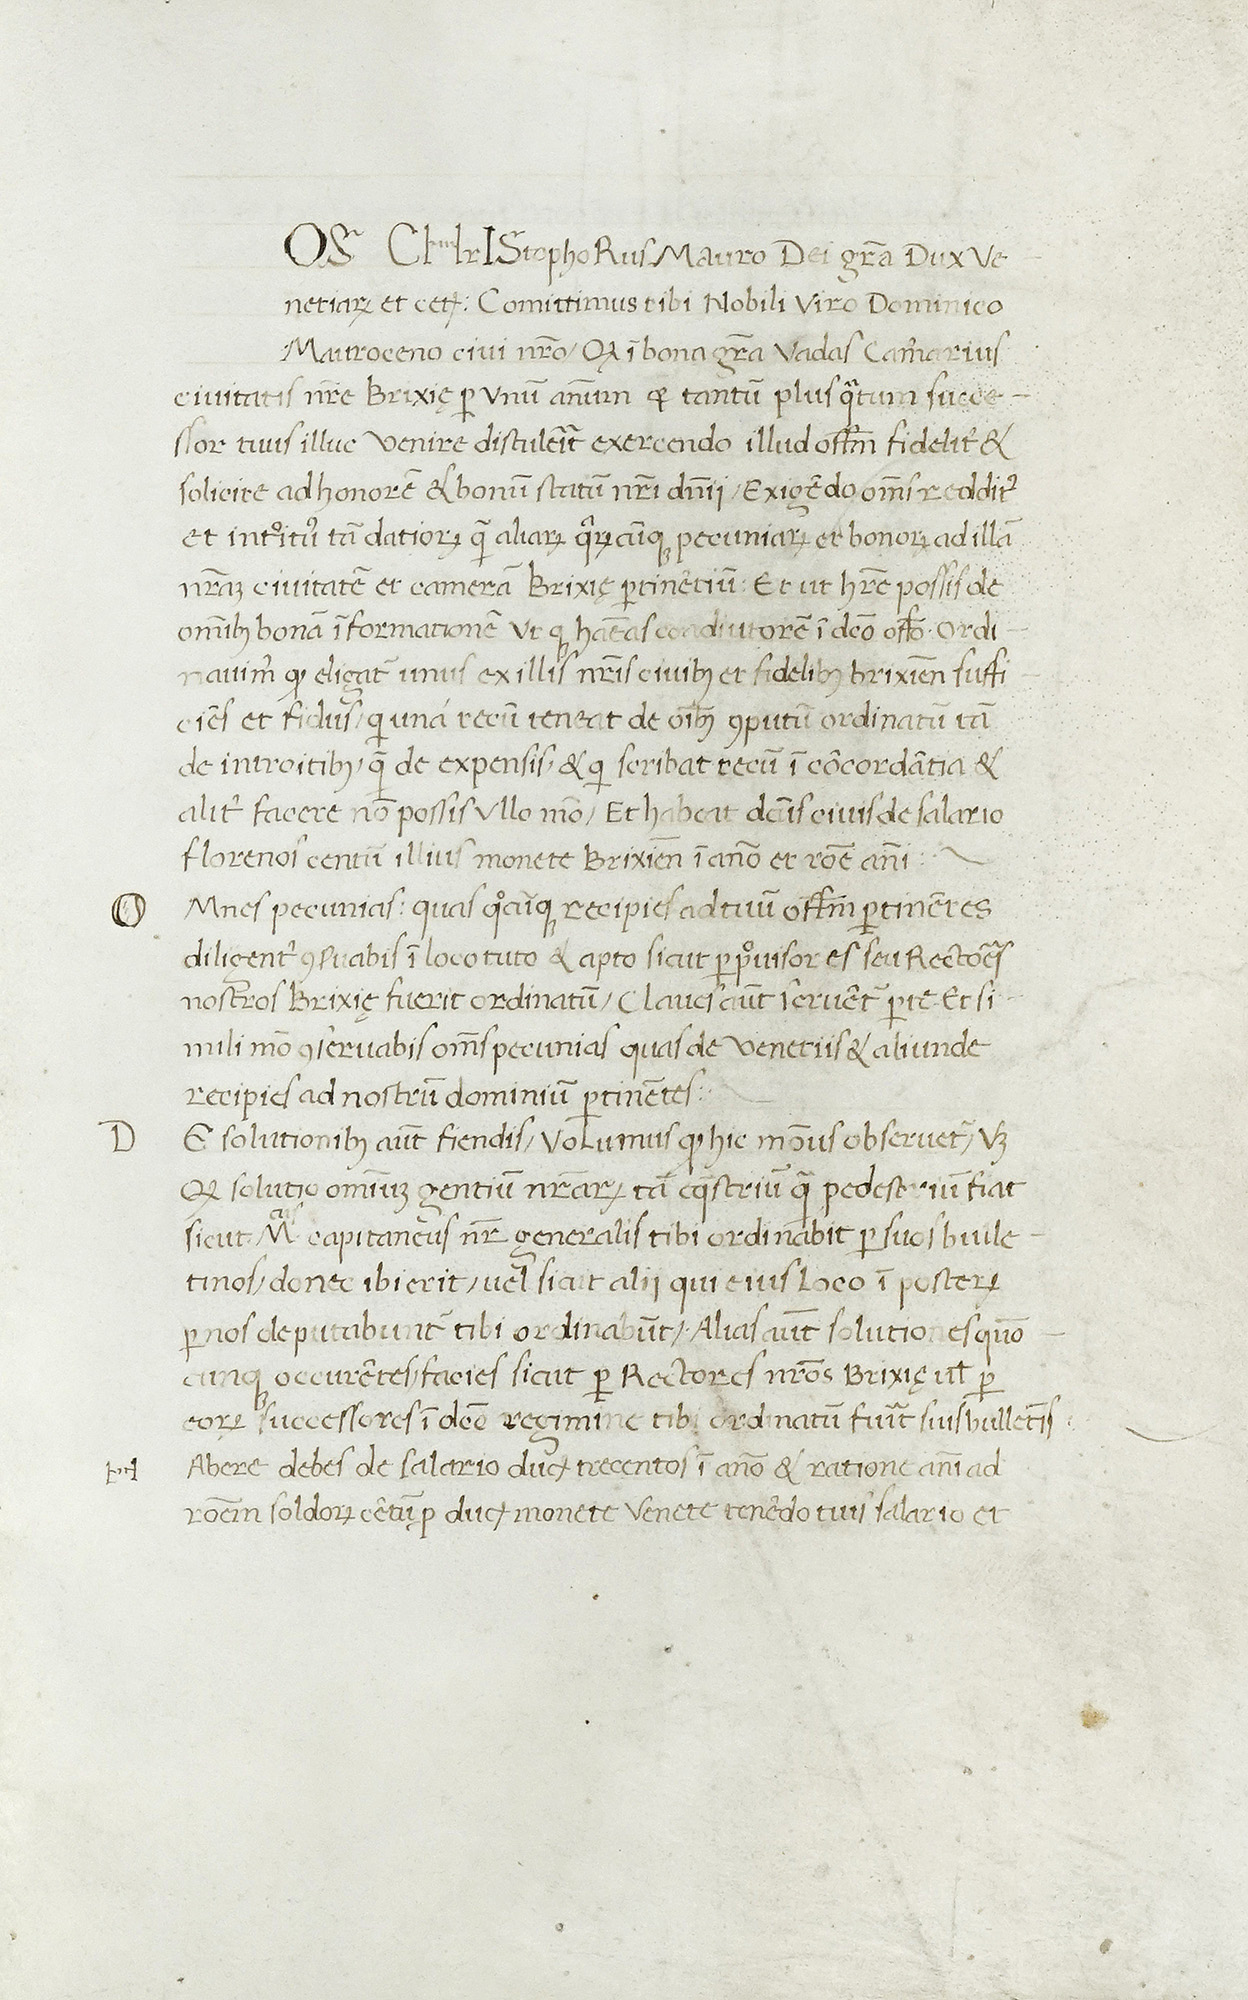 OS ChrIStophoRus Mauro Dei gr̄a Dux Ve
netiaꝝ et ceƭ: Comittimus tibi Nobili Viro Dominico
Mauroceno civi nr̄o / Qꝫ ī bona gr̄a Vadas Cam̄arius
civitatis nr̄e Brixię ꝑ Vnū an̄um ⁊ tantū plus qͣtum succe
ssor tuus illuc Venire distulerit exercendo illud offm̄ fidelit̾ &
solicite ad honorē & bonū statū nr̄i dn̄ii / Exigēdo om̄s reddit᾽
et introit᾽ tā datioꝝ qͣ aliaꝝ qͣꝝcūqꝫ pecuniaꝝ et bonoꝝ ad illā
nr̄aꝫ civitatē et camerā Brixię ꝑtinētiū: Et ut hr̄e possis de
om̄ibꝫ bonā īformationē Vt qꝫ hab̄eas coadiutorē ī dc̄o offō. Ordi
navim᾽ qꝫ eligat᾽ unus ex illis nr̄is civibꝫ et fidelibꝫ brixien̄ suffi
ciēs et fidus / qui una tecū teneat de oībꝫ ꝯputū ordinatū tā
de introitibꝫ / qͣ de expensis / & qui scribat tecū ī cōcordātia &
alit̾ facere nō possis Vllo mō / Et habeat dc̄us civis de salario
florenos centū illius monete Brixien̄ ī an̄o et rōe an̄i:
O Mnes pecunias: quas qͦcūqꝫ recipies ad tuū offm̄ ꝑtinētes
diligent̾ ꝯs̾uabis ī loco tuto & apto sicut ꝑ ꝓuisores seu Rectores
nostros Brixię fuerit ordinatū / Claves aūt s̾eruēt᾽ ꝑ te. Et si
mili mō ꝯs̾eruabis om̄s pecunias quas de Venetiis & aliunde
recipies ad nostrū dominiū ꝑtinētes:
D E solutionibꝫ aūt fiendis / Volumus qꝫ hic modus observet᾽ / Vꝫ
Qꝫ solutio omniuꝫ gentiū nr̄aꝝ tā equestriū qͣ pedestriū fiat
sicut Mͣ capitaneus nr̄ generalis tibi ordinabit ꝑ suos bulle
tinos / donec ibi erit / vel sicut alii qui eius Loco ī posteꝝ
ꝑ nos deputabunt᾽ tibi ordinabūt / Alias aūt solutiones quō
cunqꝫ occurētes / facies sicut ꝑ Rectores nr̄os Brixię ul̄ ꝑ
eoꝝ successores ī dc̄o regimine tibi ordinatū fuerit suis bulletis
H Abere debes de salario ducƭ trecentos ī an̄o & ratione an̄i ad
rōem soldoꝝ cētū ꝑ ducƭ monete Venete tenēdo tuis salario et